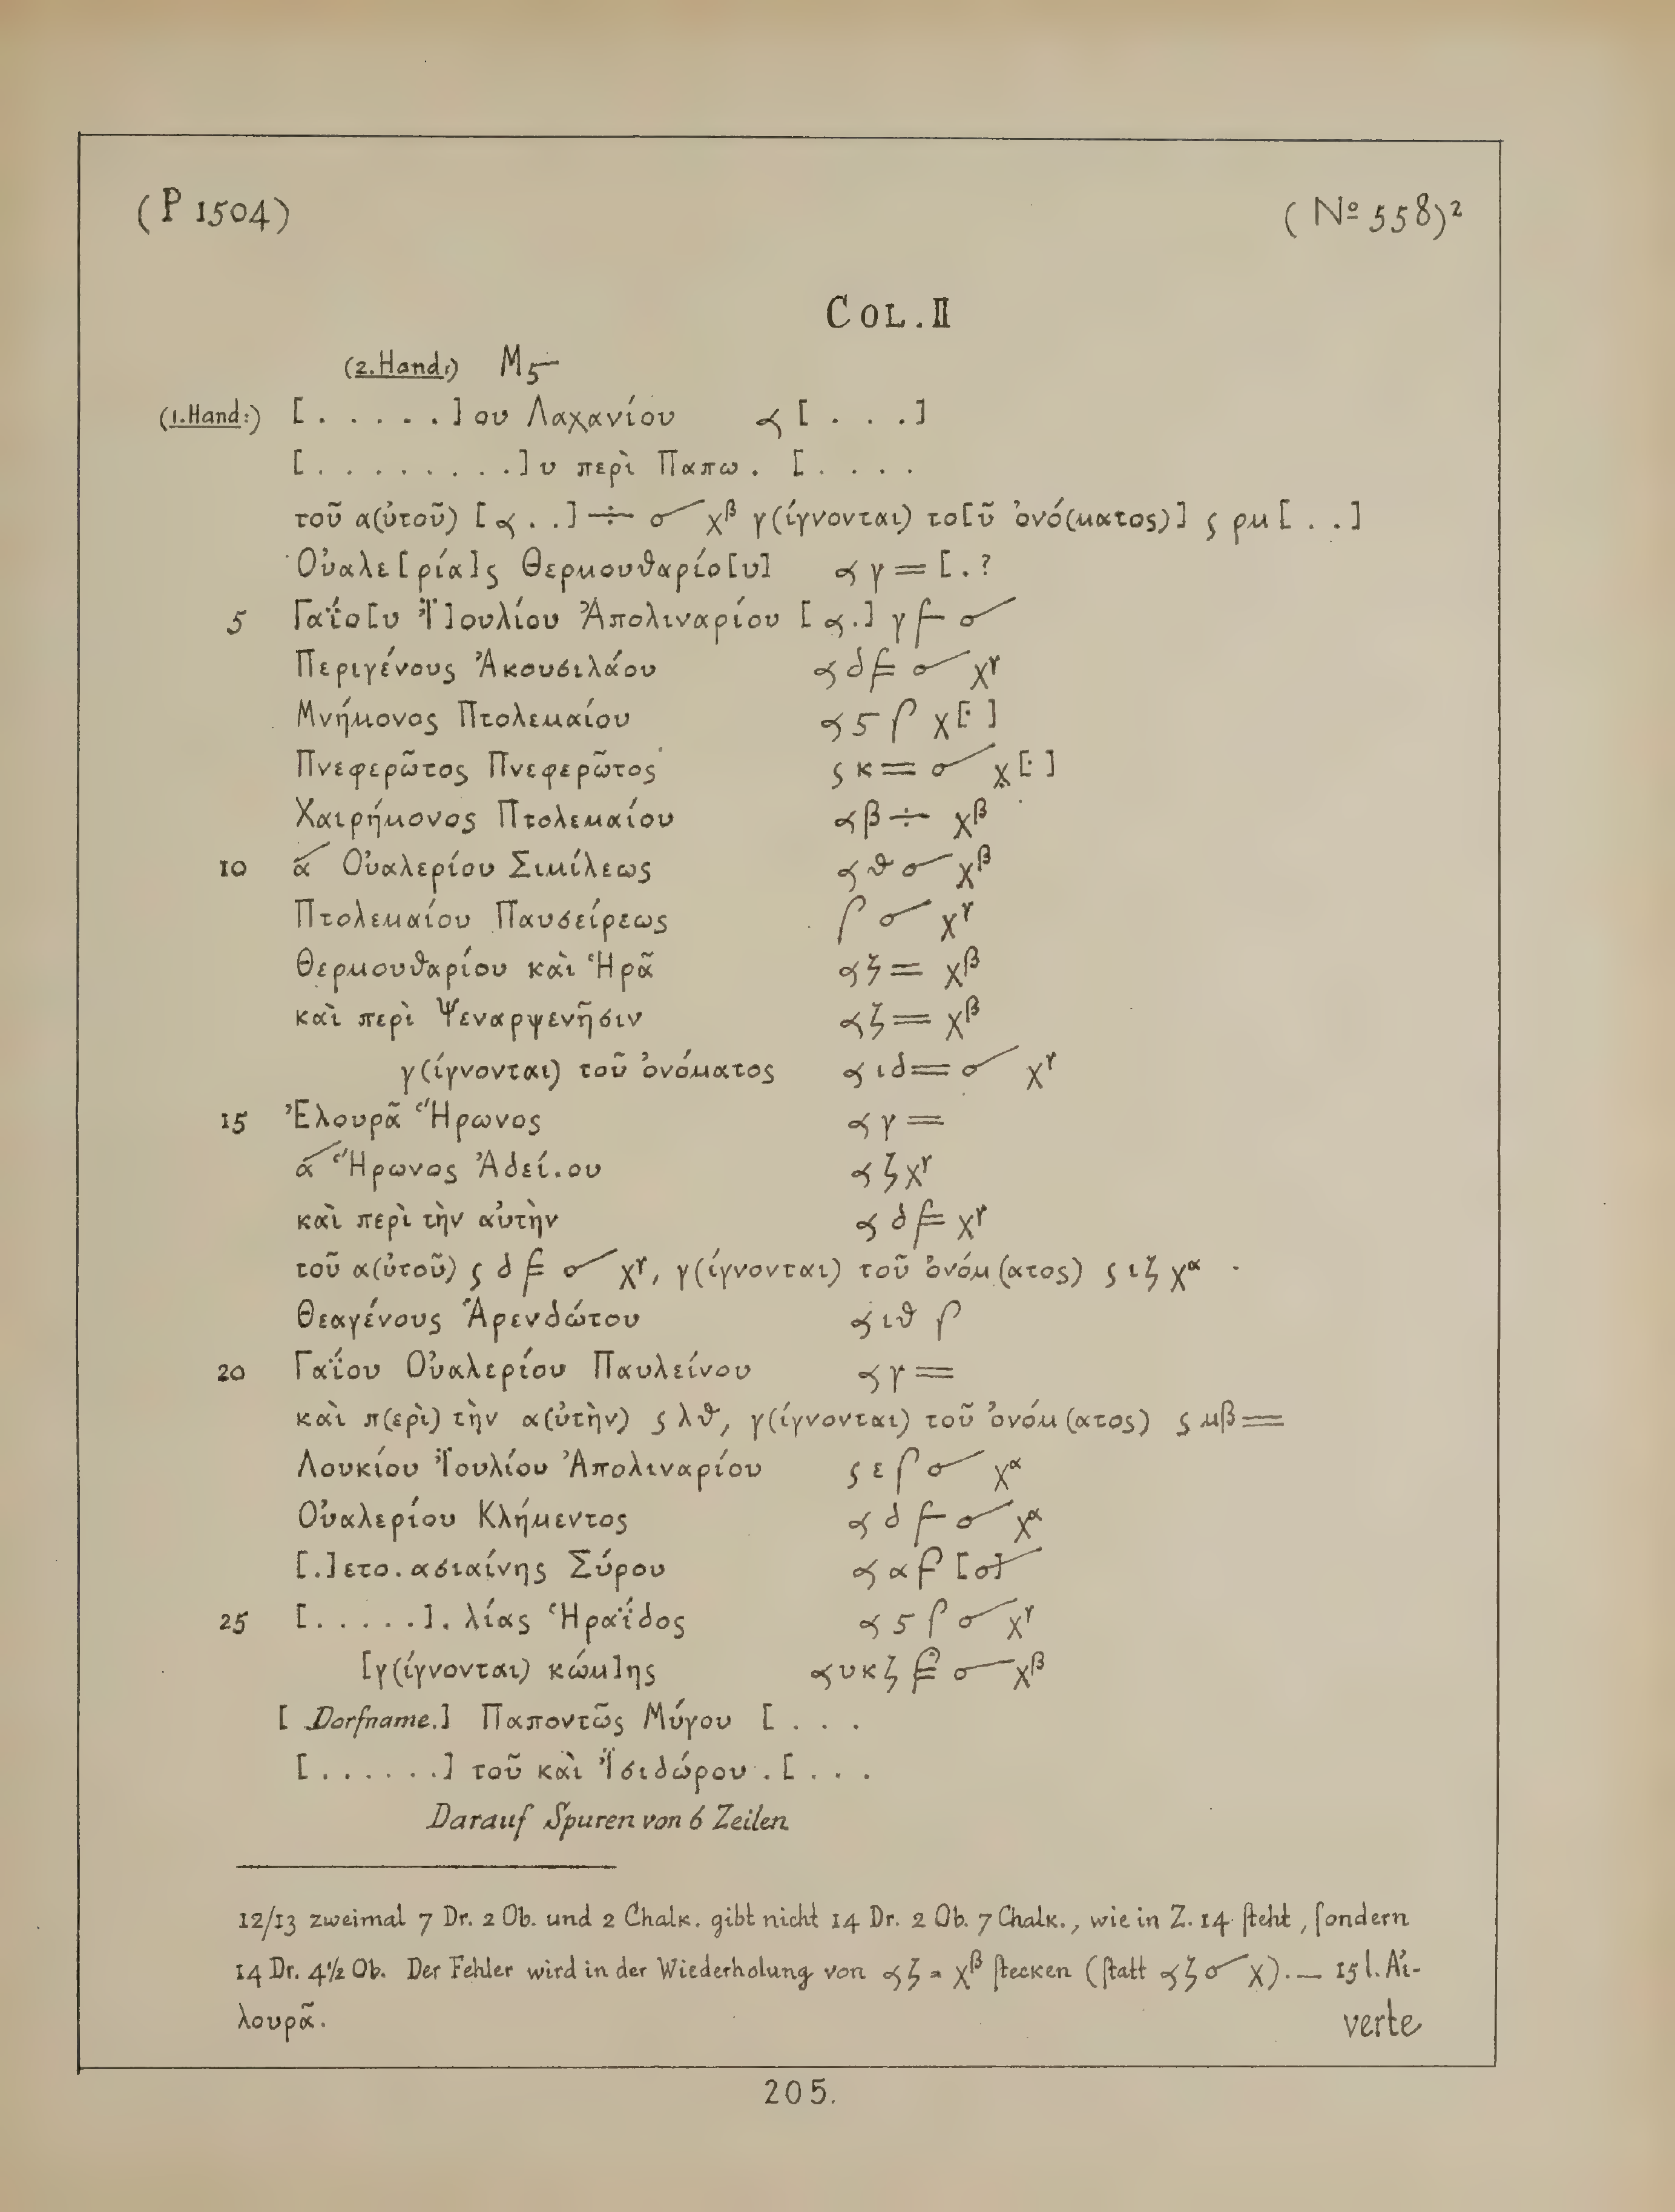 (P 1504)
(Nº 558)²
COL. II
(2. Hand:) Μϛ
(1. Hand:) [. . . . . .]ου Λαχανίου 𐅻 [. . . .]
[. . . . . . . . .]υ περὶ Παπω . [. . . .
τοῦ α(ὐτοῦ) [𐅻 . .] ÷ σ χβ γ(ίγνονται) το[ῦ ὀνό(ματος)] ς ρμ[. .]
Οὐαλε[ρία]ς Θερμουθαρίο[υ] 𐅻 γ = [.?
5 Γαΐο[υ Ἰ]ουλίου Ἀπολιναρίου [𐅻.] γ 𐅼 σ
Περιγένους Ἀκουσιλάου 𐅻 δ σ χγ
Μνήμονος Πτολεμαίου 𐅻 ϛ ʃ χ[.]
Πνεφερῶτος Πνεφερῶτος ς κ = σ χ[.]
Χαιρήμονος Πτολεμαίου 𐅻 β ÷ χβ
10 α Οὐαλερίου Σιμίλεως 𐅻 θ σ χβ
Πτολεμαίου Παυσείρεως ʃ σ χγ
Θερμουθαρίου καὶ Ἡρᾶ 𐅻 ζ = χβ
καὶ περὶ Ψεναρψενῆσιν 𐅻 ζ = χβ
γ(ίγνονται) τοῦ ὀνόματος 𐅻 ιδ = σ χγ
15 Ἐλουρᾶ Ἥρωνος 𐅻 γ =
α Ἥρωνος Ἀδεί.ου 𐅻 ζ χγ
καὶ περὶ τὴν αὐτὴν 𐅻 δ χγ
τοῦ α(ὐτοῦ) ς δ σ χγ, γ(ίγνονται) τοῦ ὀνόμ(ατος) ς ιζ χα
Θεαγένους Ἁρενδώτου 𐅻 ιθ ʃ
20 Γαΐου Οὐαλερίου Παυλείνου 𐅻 γ =
καὶ π(ερὶ) τὴν α(ὐτὴν) ς λθ, γ(ίγνονται) τοῦ ὀνόμ(ατος) ς μβ =
Λουκίου Ἰουλίου Ἀπολιναρίου ς ε ʃ σ χα
Οὐαλερίου Κλήμεντος 𐅻 δ σ χα
[.]ετο.ασιαίνης Σύρου 𐅻 α [σ]
25 [. . . . . .]. λίας Ἡραΐδος 𐅻 ϛ ʃ σ χγ
[γ(ίγνονται) κώμ]ης 𐅻 υκζ σ χβ
[ Dorfname.] Παποντῶς Μύγου [. . .
[. . . . . . .] τοῦ καὶ Ἰσιδώρου . [. . .
Darauf Spuren von 6 Zeilen
12/13 zweimal 7 Dr. 2 Ob. und 2 Chalk. gibt nicht 14 Dr. 2 Ob. 7 Chalk., wie in Z. 14 ſteht, ſondern
14 Dr. 4½ Ob. Der Fehler wird in der Wiederholung von 𐅻 ζ = χβ ſtecken (ſtatt 𐅻 ζ σ χ). — 15 l. Αἰ-
λουρᾶ.
verte
205.